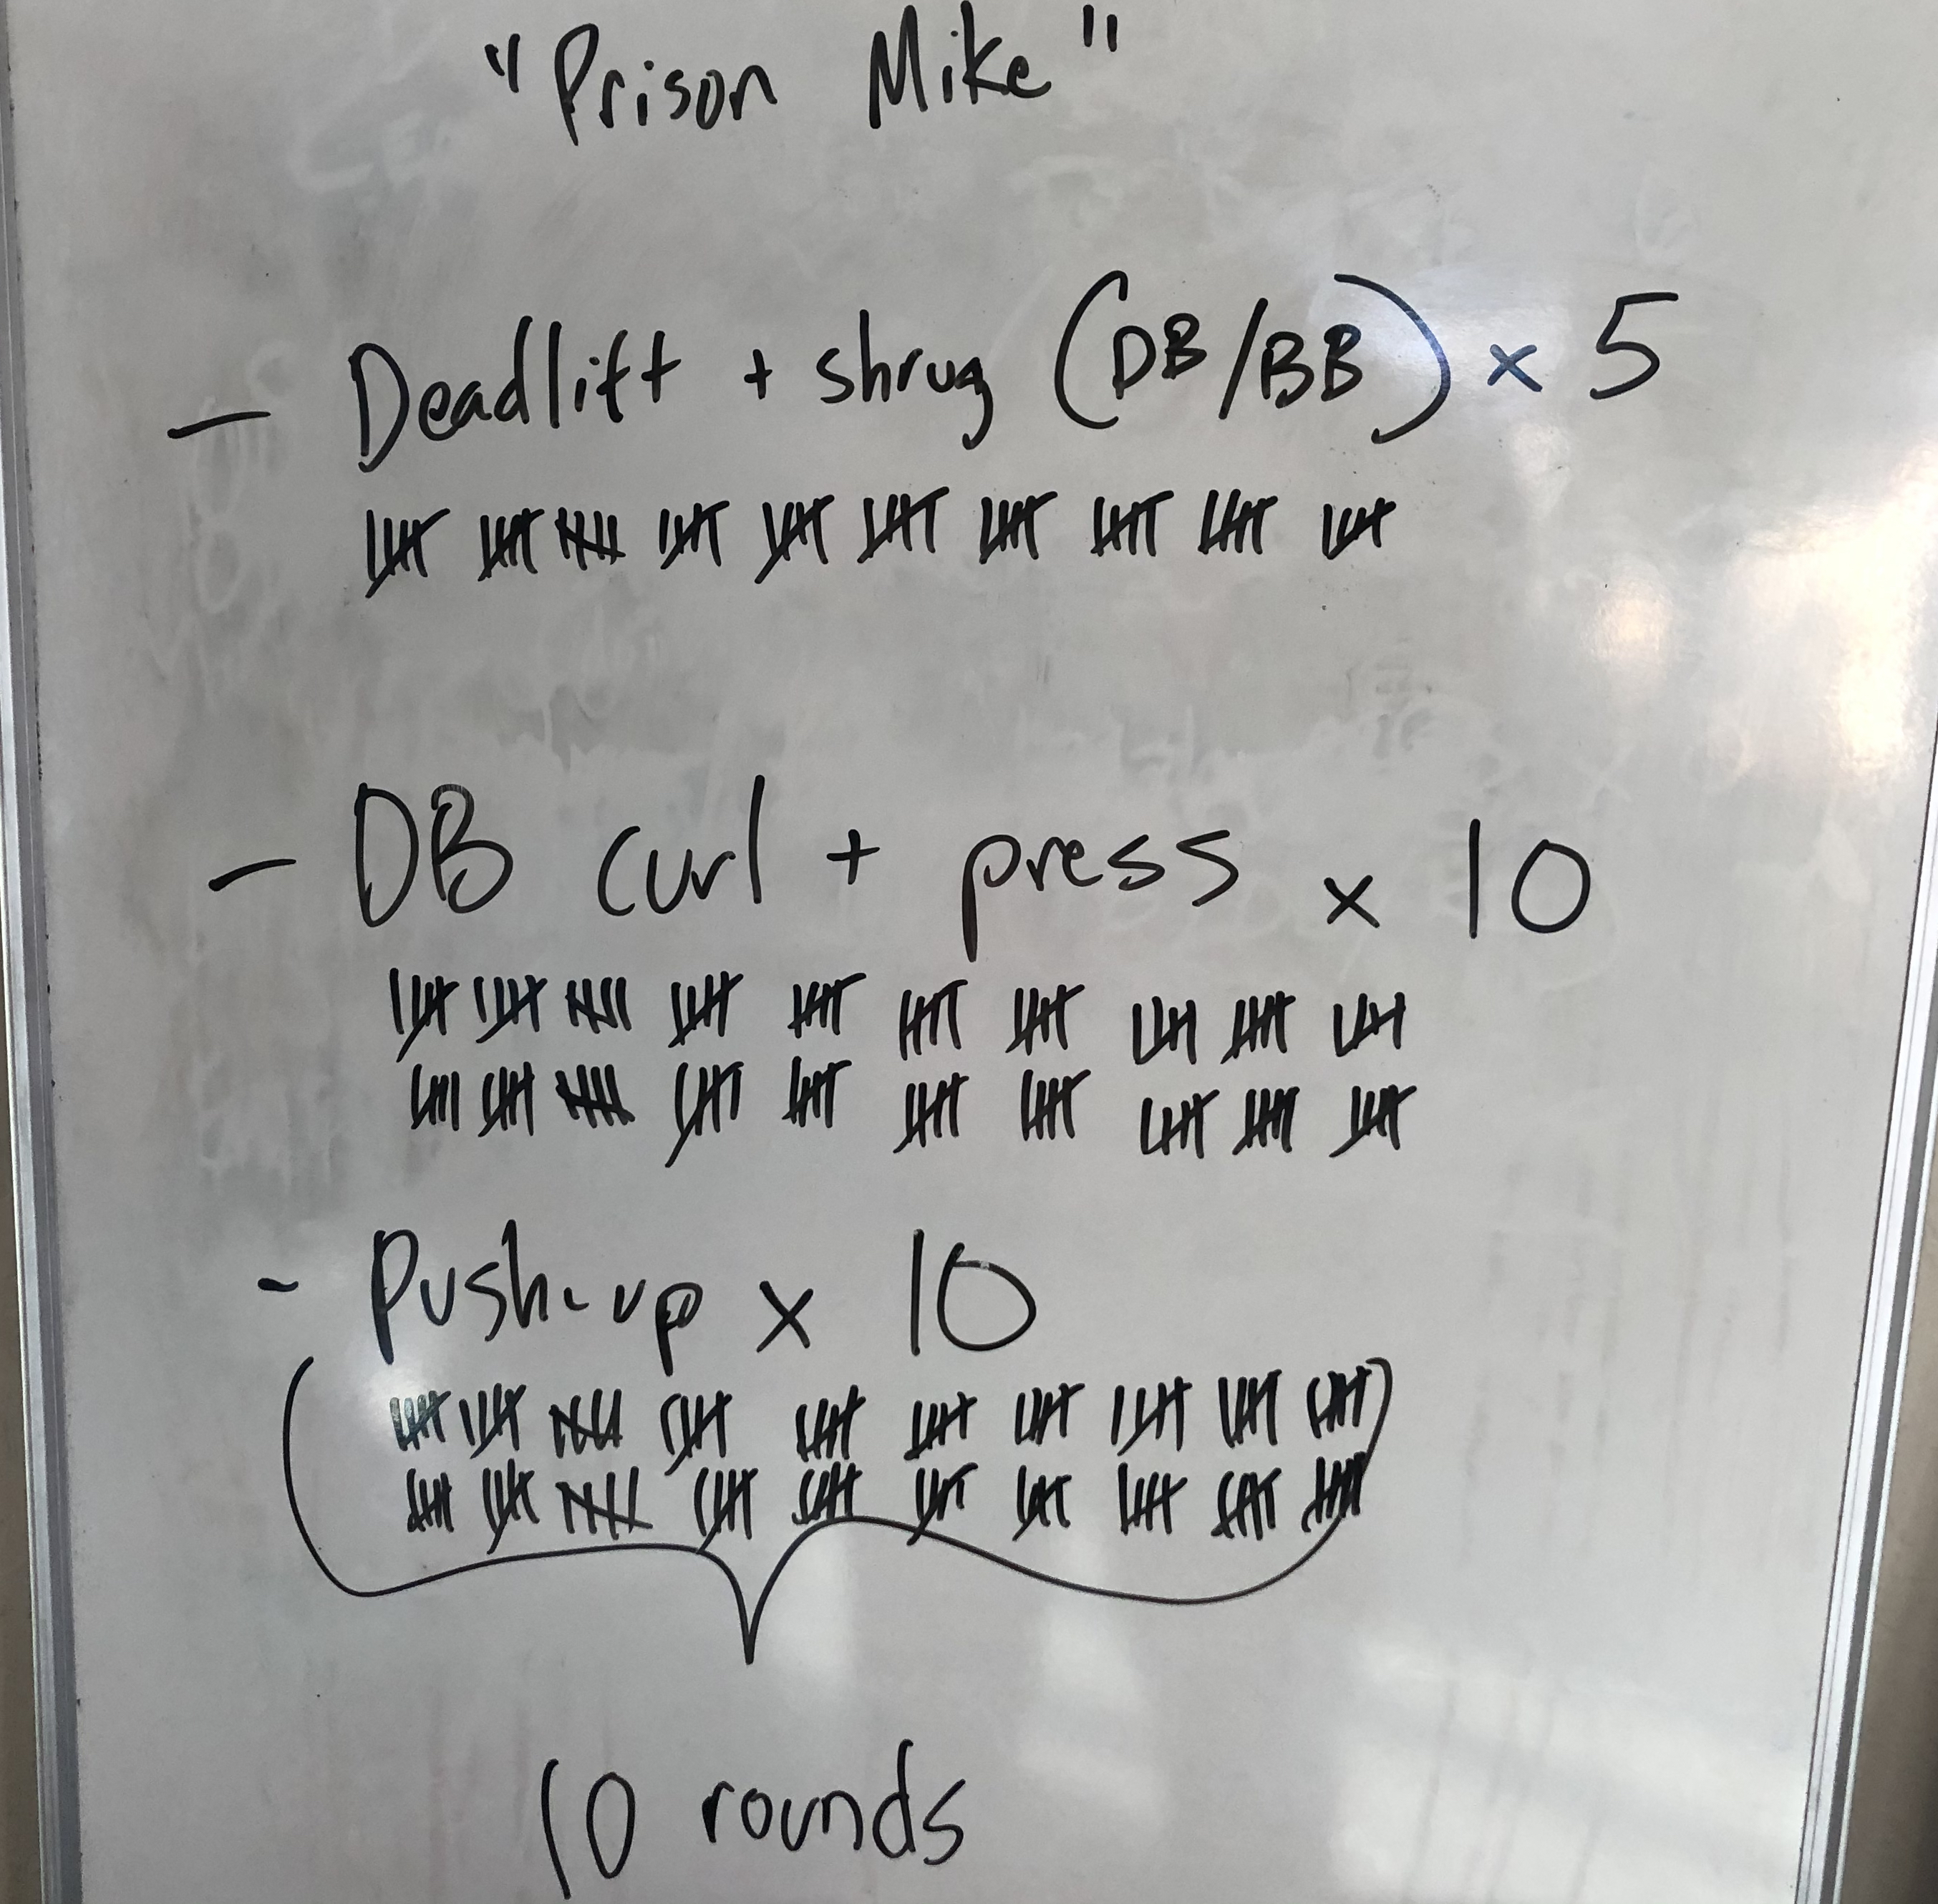 "Prison Mike"
- Deadlift + shrug (DB/BB) x 5
- DB curl + press x 10
- Push-up x 10
10 rounds